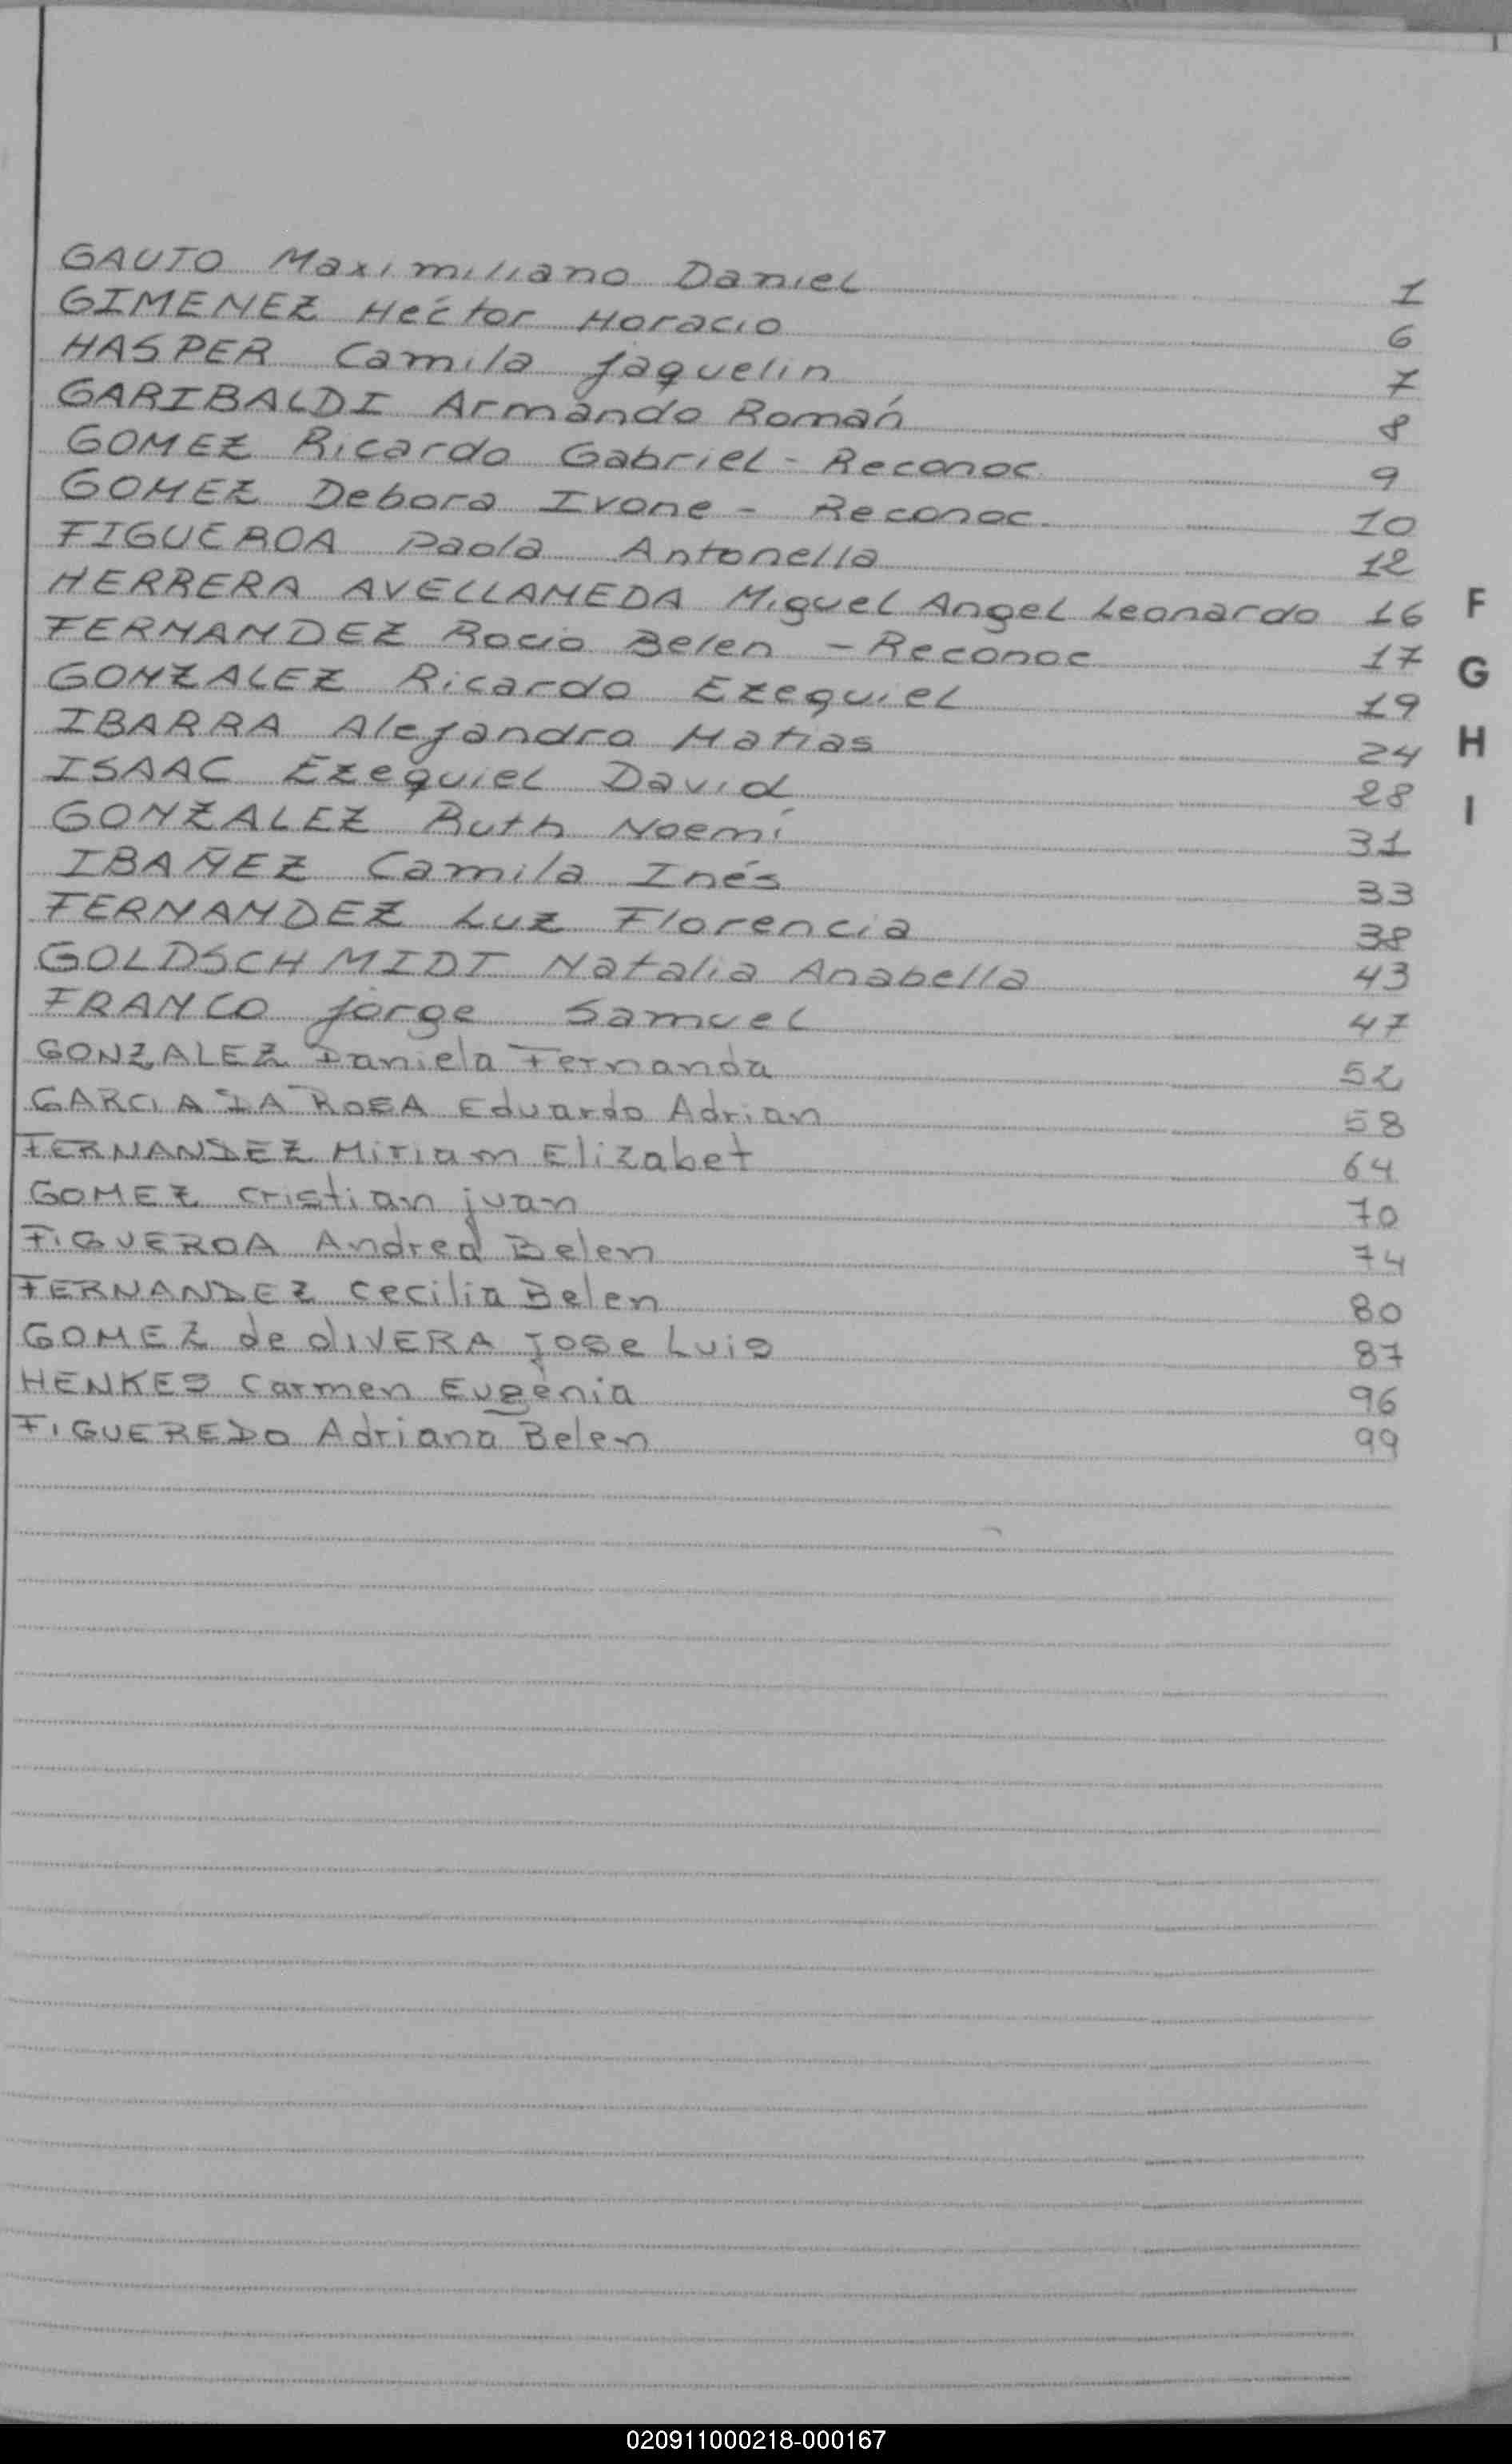 GAUTO Maximiliano Daniel 1
GIMENEZ Héctor Horacio 6
HASPER Camila Jaquelin 7
GARIBALDI Armando Román 8
GOMEZ Ricardo Gabriel - Reconoc. 9
GOMEZ Debora Ivone - Reconoc. 10
FIGUEROA Paola Antonella 12
HERRERA AVELLANEDA Miguel Angel Leonardo 16
FERNANDEZ Rocio Belen - Reconoc 17
GONZALEZ Ricardo Ezequiel 19
IBARRA Alejandro Matias 24
ISAAC Ezequiel David 28
GONZALEZ Ruth Noemí 31
IBAÑEZ Camila Inés 33
FERNANDEZ Luz Florencia 38
GOLDSCHMIDT Natalia Anabella 43
FRANCO Jorge Samuel 47
GONZALEZ Daniela Fernanda 52
GARCIA DA ROSA Eduardo Adrian 58
FERNANDEZ Miriam Elizabet 64
GOMEZ Cristian juan 70
FIGUEROA Andrea Belen 74
FERNANDEZ Cecilia Belen 80
GOMEZ de OLIVERA Jose Luis 87
HENKES Carmen Eugenia 96
FIGUEREDO Adriana Belen 99
F
G
H
I
020911000218-000167